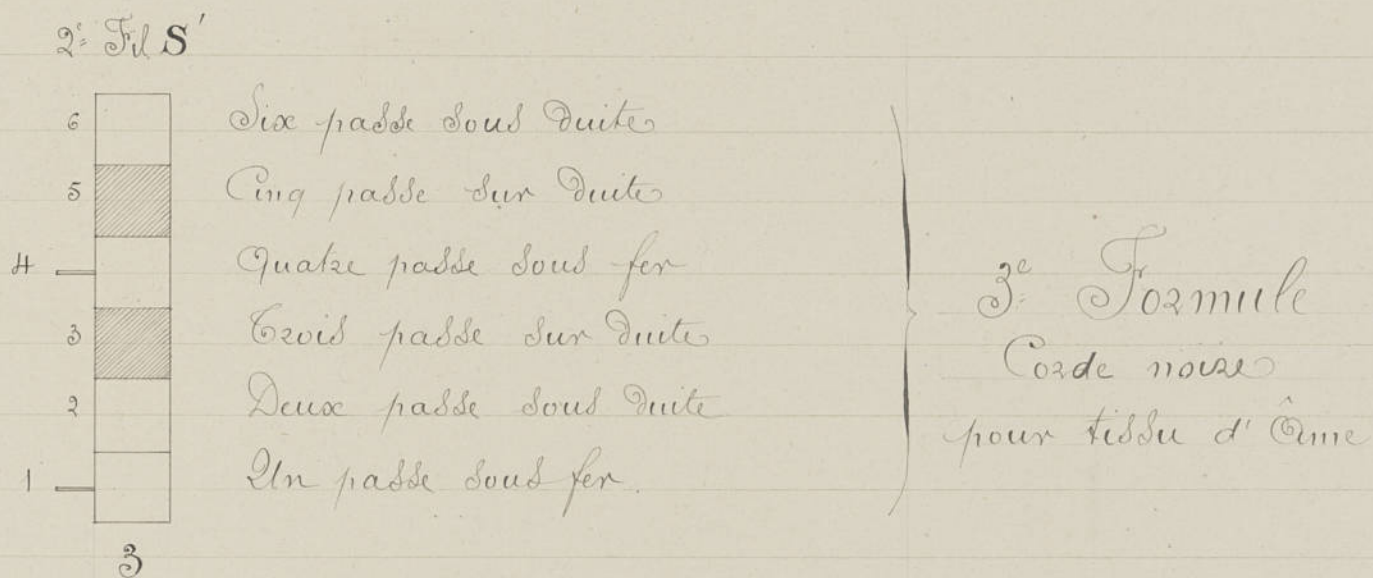 2e Fil S'
6 Six passe sous duite
5 Cinq passe sur duite
4 Quatre passe sous fer
3 Trois passe sur duite
2 Deux passe sous duite
1 Un passe sous fer.
3
3e Formule
Corde noire
pour tissu d'Âme